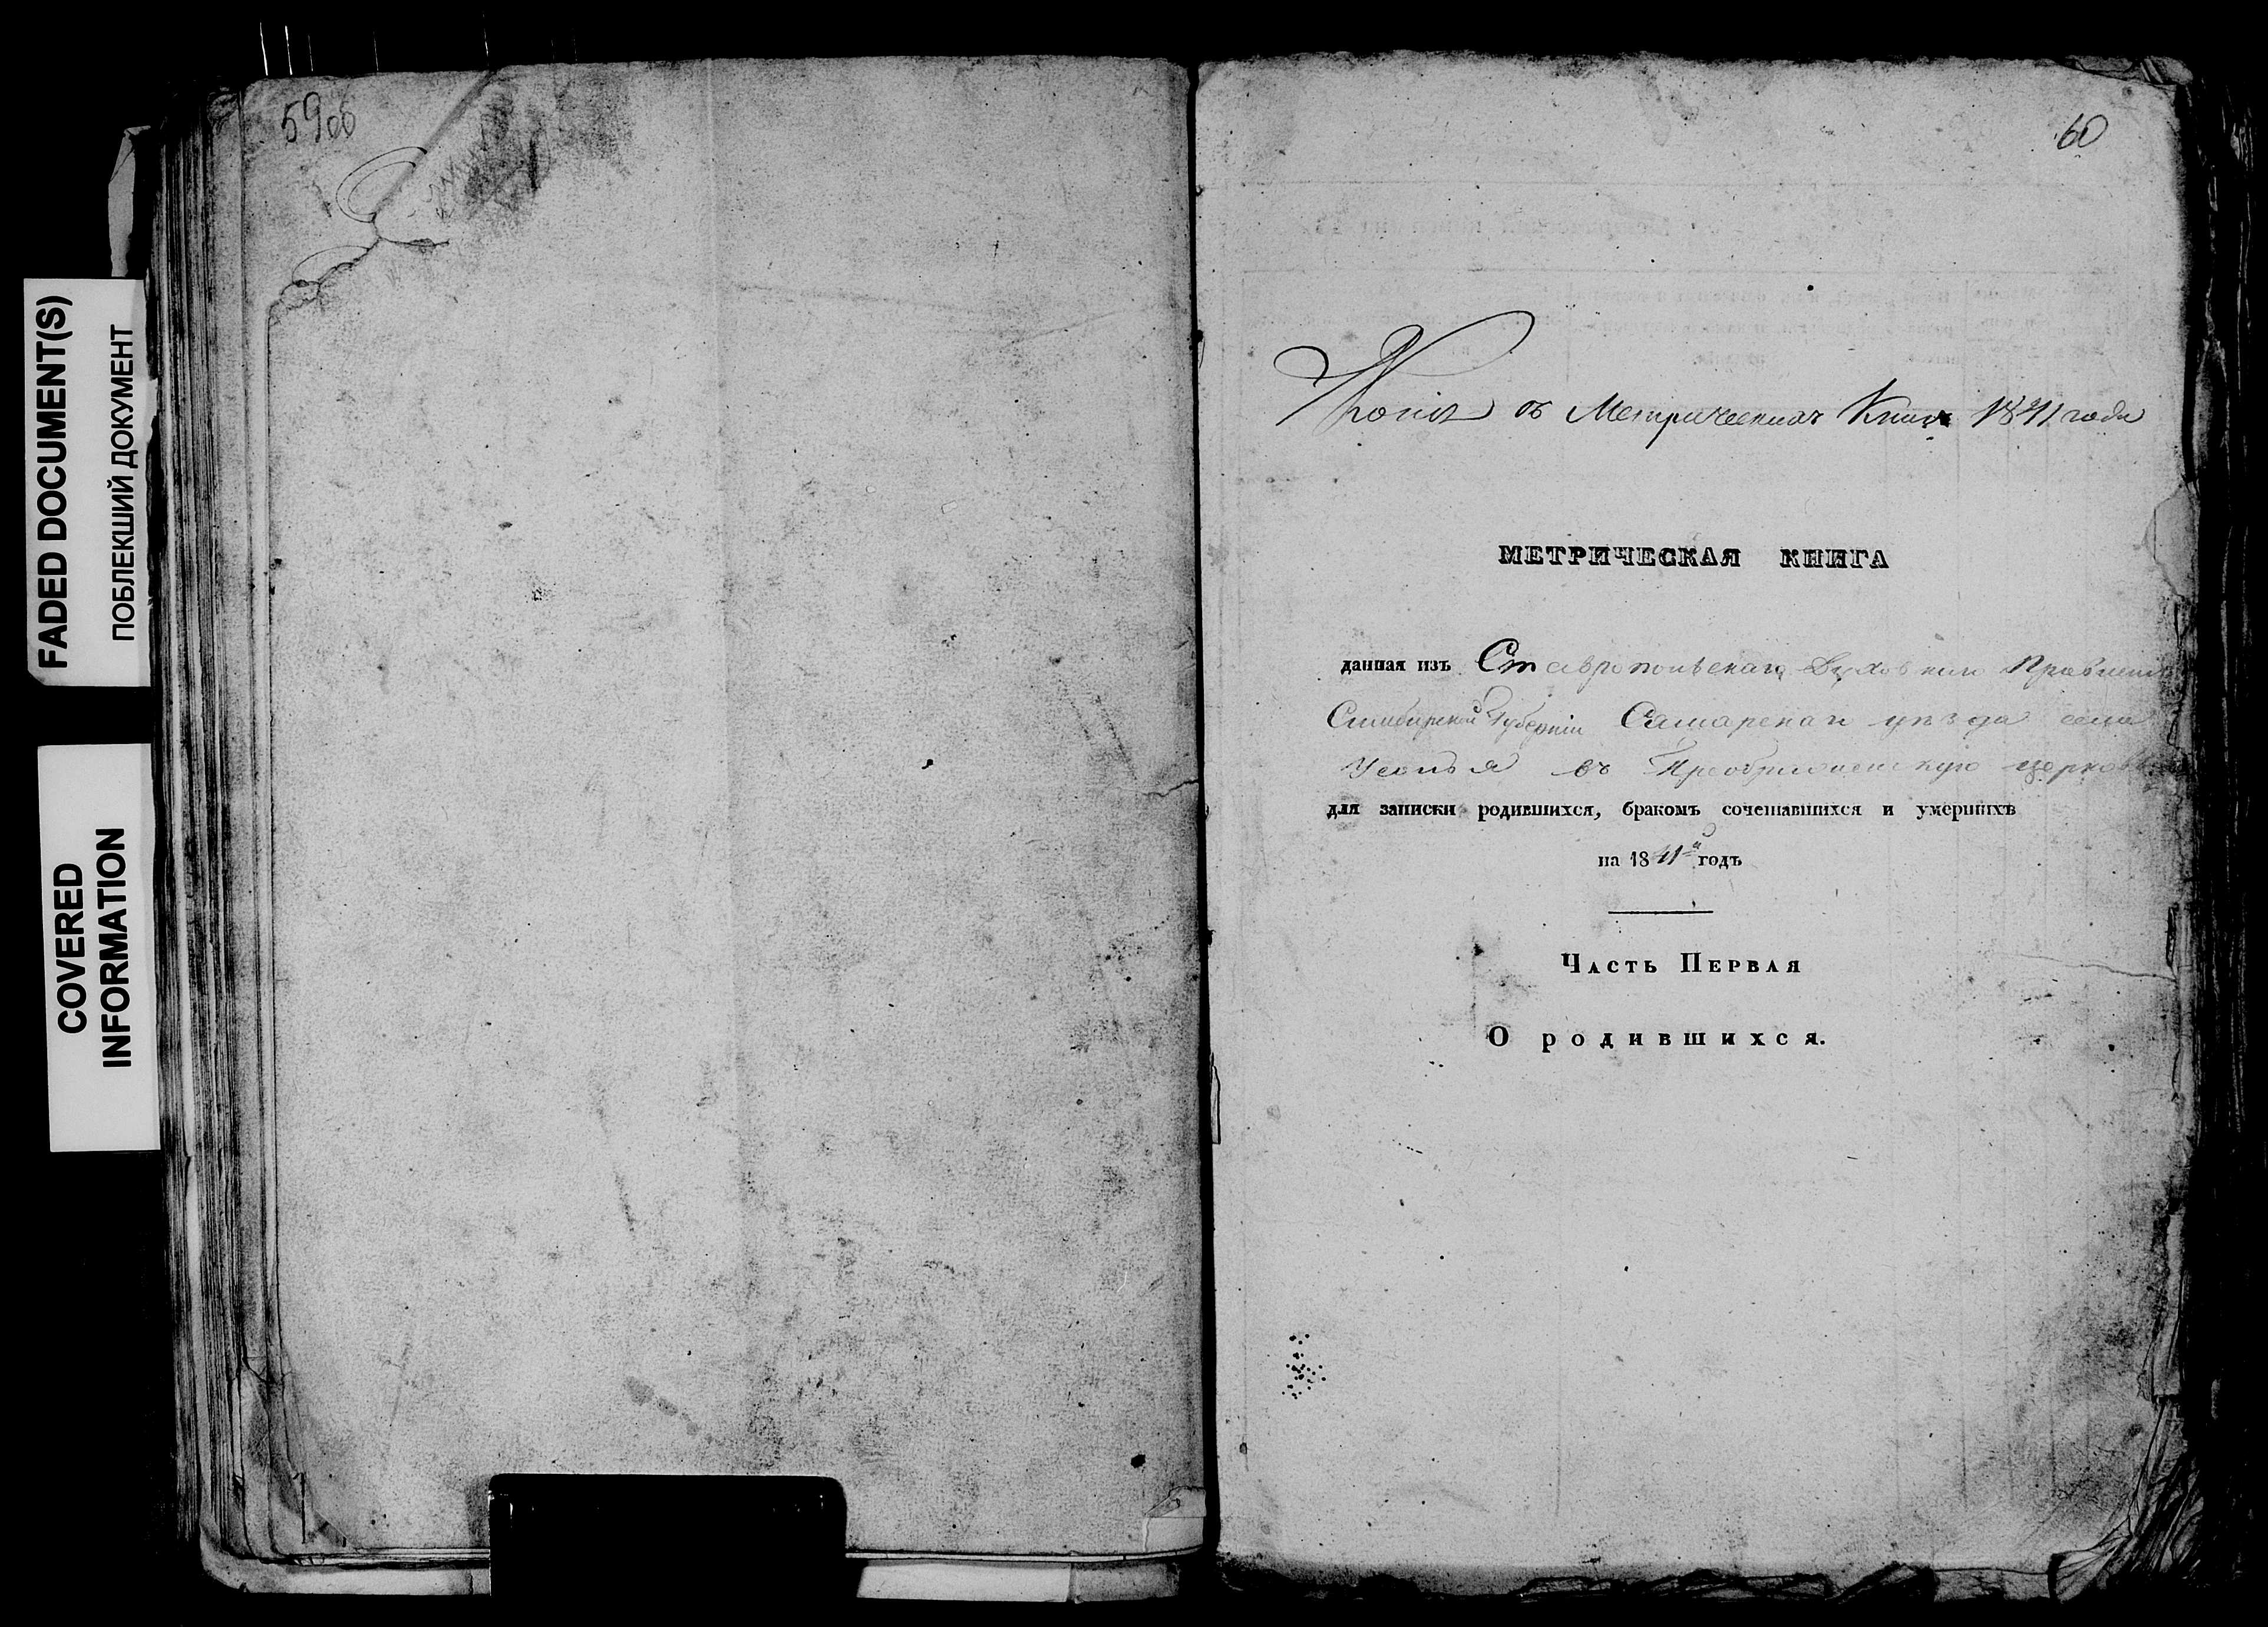 FADED DOCUMENT(S)
ПОБЛЕКШИЙ ДОКУМЕНТ
COVERED
INFORMATION
59об
60
Копия съ Метрическихъ Книгъ 1841 года
МЕТРИЧЕСКАЯ КНИГА
данная изъ Ставропольскаго Духовнаго
Симбирской Губерніи Самарскаго уѣзда села
Усолья въ Преображенскую церковь
для записки родившихся, бракомъ сочетавшихся и умершихъ
на 1841й годъ
Часть Первая
О родившихся.